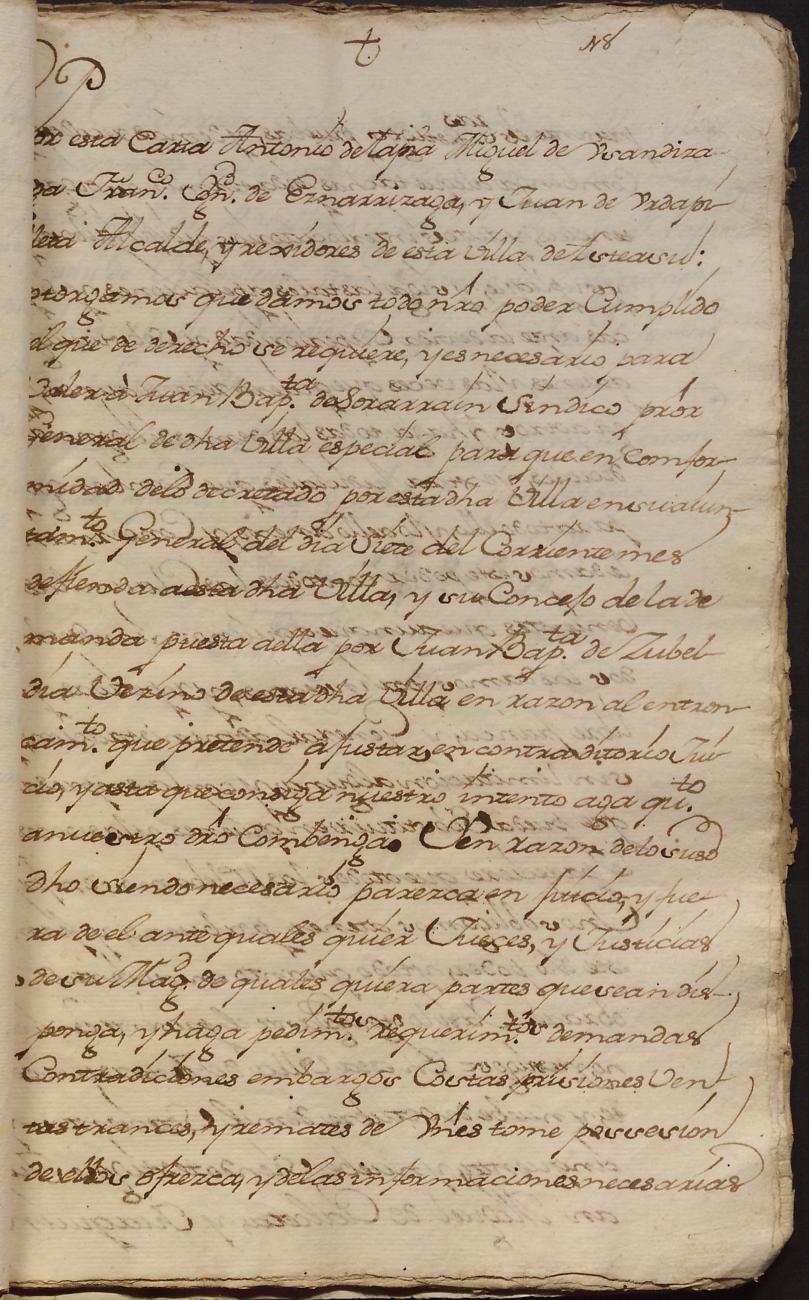 N8
Por esta Carta Antonio de tapia Miguel de Vsandiza
ga Fran.co Ygn.o de Eznarrizaga, y Juan de Vrdapi
lleta Alcalde, y rexidores de esta Villa de Asteasu:
otorgamos que damos todo nr̃o poder Cumplido
el que de derecho se requiere, y es necesario para
Valer a Juan Bap.ta de Sorarrain Sindico pror
General de dha Villa especial para que en Comfor
midad de lo decretado por esta dha Villa en su aiun
tam.to General del dia Siete del Corriente mes
defienda a esta dha Villa, y su Concejo de la de
manda puesta a ella por Juan Bap.ta de Zubel
dia Vezino de esta dha Villa en razon al entron
cam.to que pretende a justar, en contraditorio Jui
cio, y asta que consiga nuestro intento aga qu.to
a nuestro dr̃o Combenga. Y en razon de lo suso
dho siendo necesario parezca en juicio, y fue
ra de el ante quales quier Jueces, y Justicias
de su Mag.d de quales quiera partes que sean dis
ponga, y haga pedim.tos requerim.tos demandas
Contradiciones embargos Costas prisiones Ven
tas trances, y remates de vnes tome possesion
de ellos ofrezca, y de las informaciones necesarias